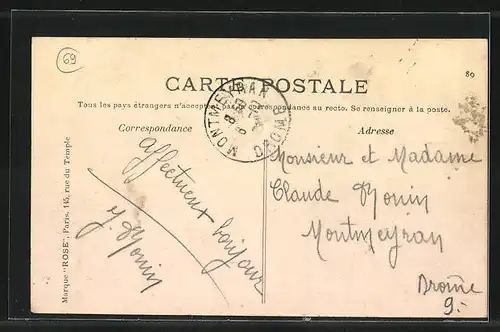 69
CARTE POSTALE
89
Tous les pays étrangers n'acceptent pas la correspondance au recto. Se renseigner à la poste.
Correspondance
Adresse
MONTMEYRAN DROME
affectueux bonjour
J. Monin
Monsieur et Madame
Claude Monin
Montmeyran
Drome
9.-
Marque "ROSE", Paris, 145, rue du Temple